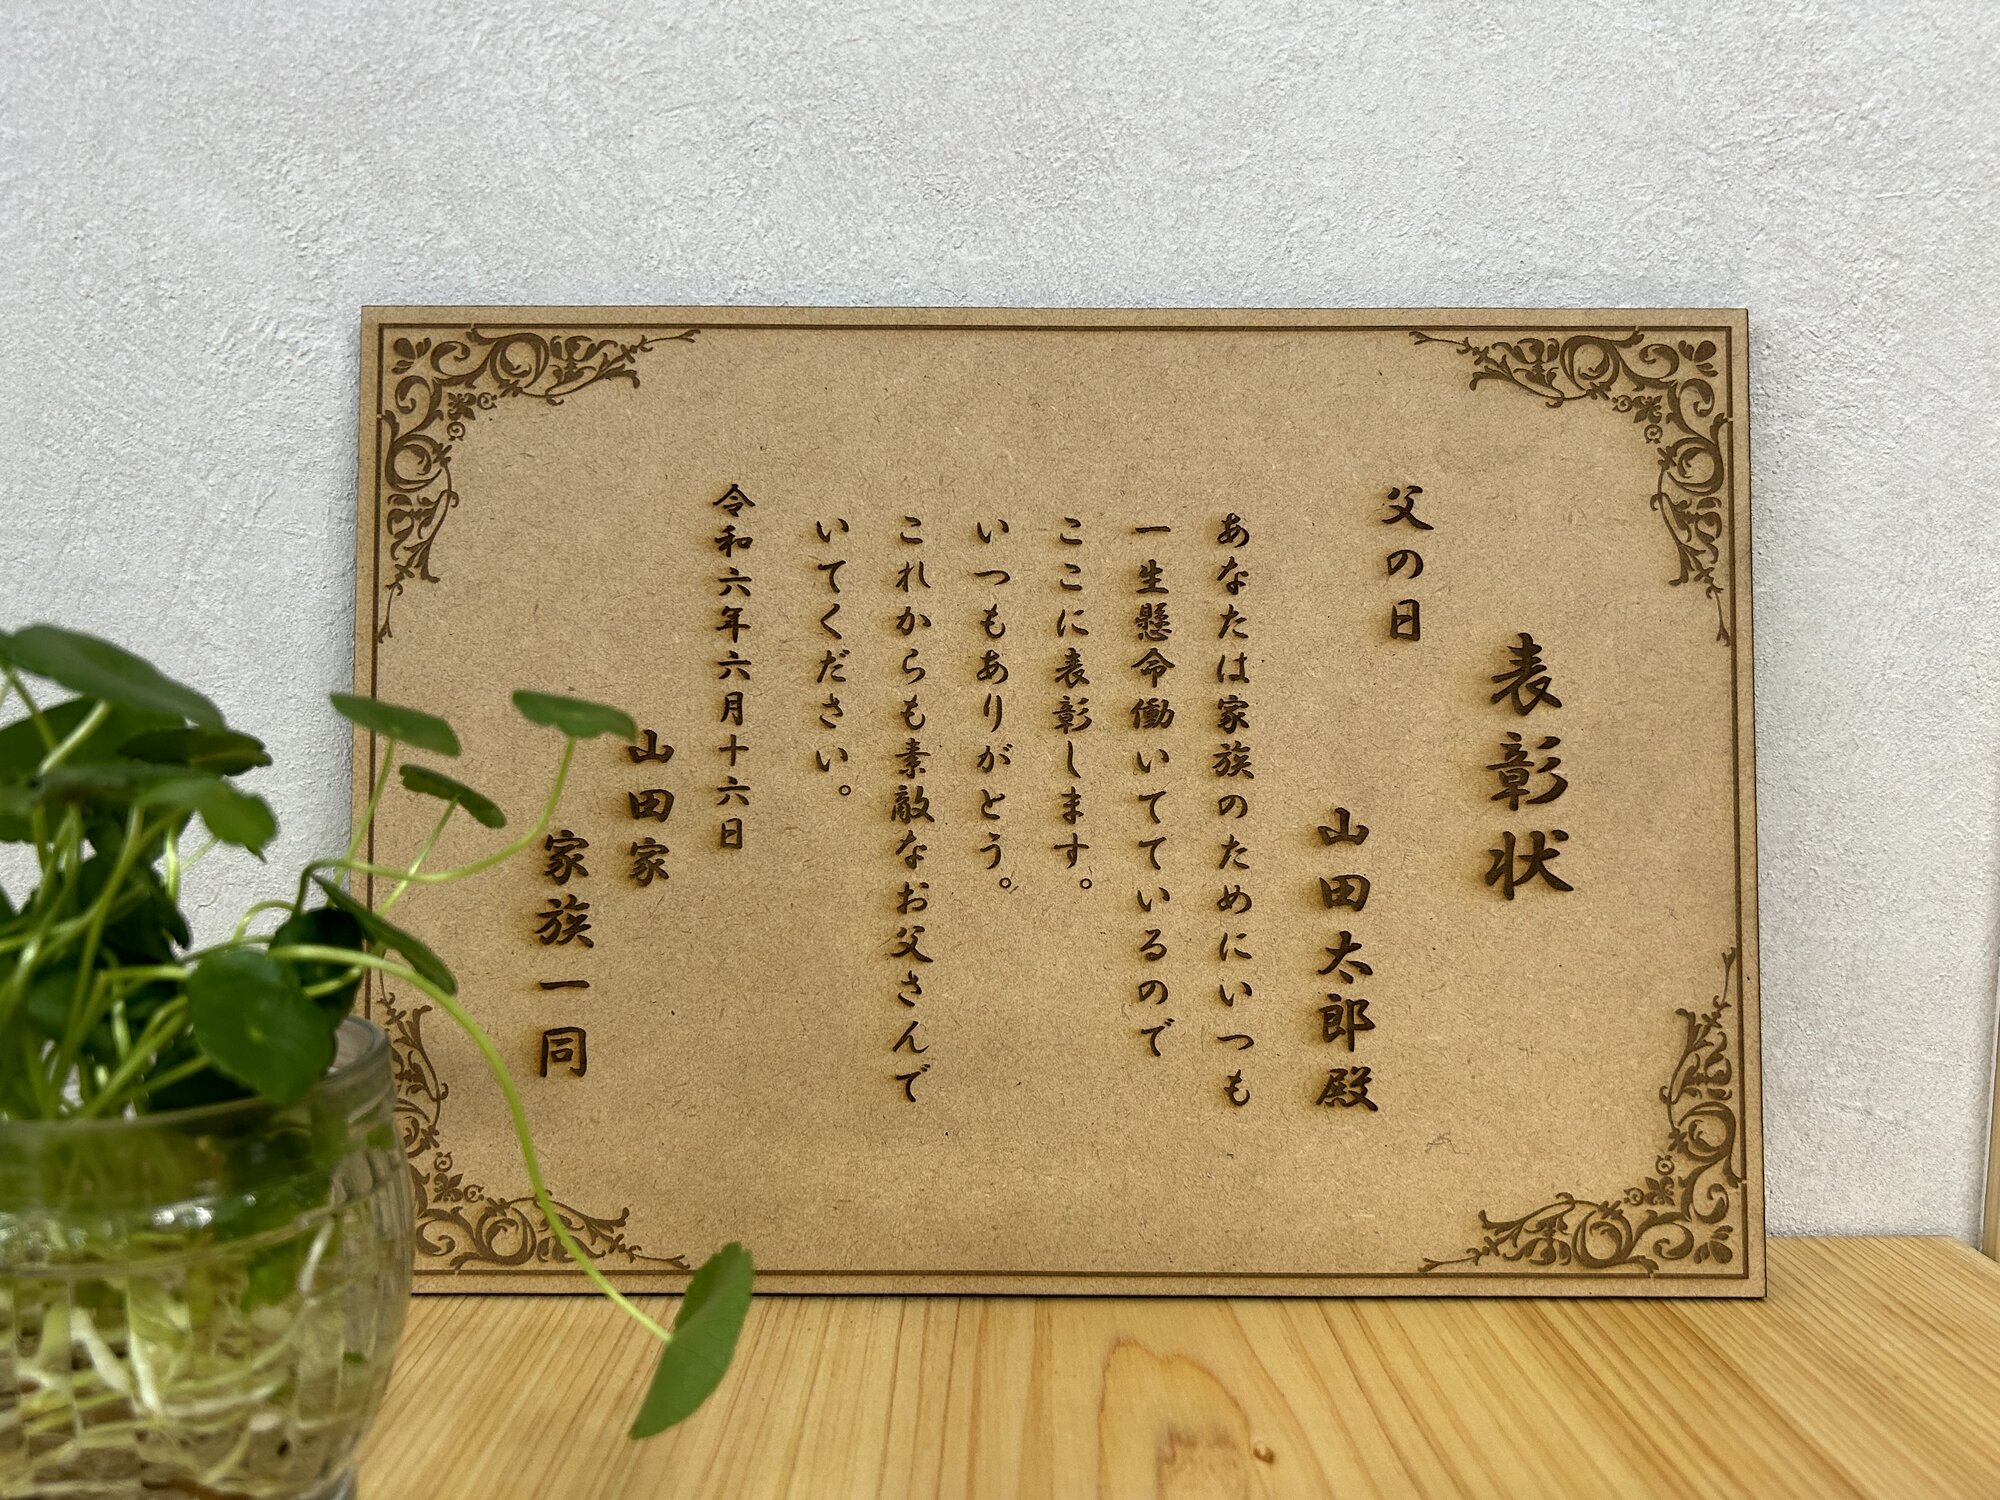 表彰状
父の日
山田太郎殿
あなたは家族のためにいつも
一生懸命働いてているので
ここに表彰します。
いつもありがとう。
これからも素敵なお父さんで
いてください。
令和六年六月十六日
山田家
家族一同